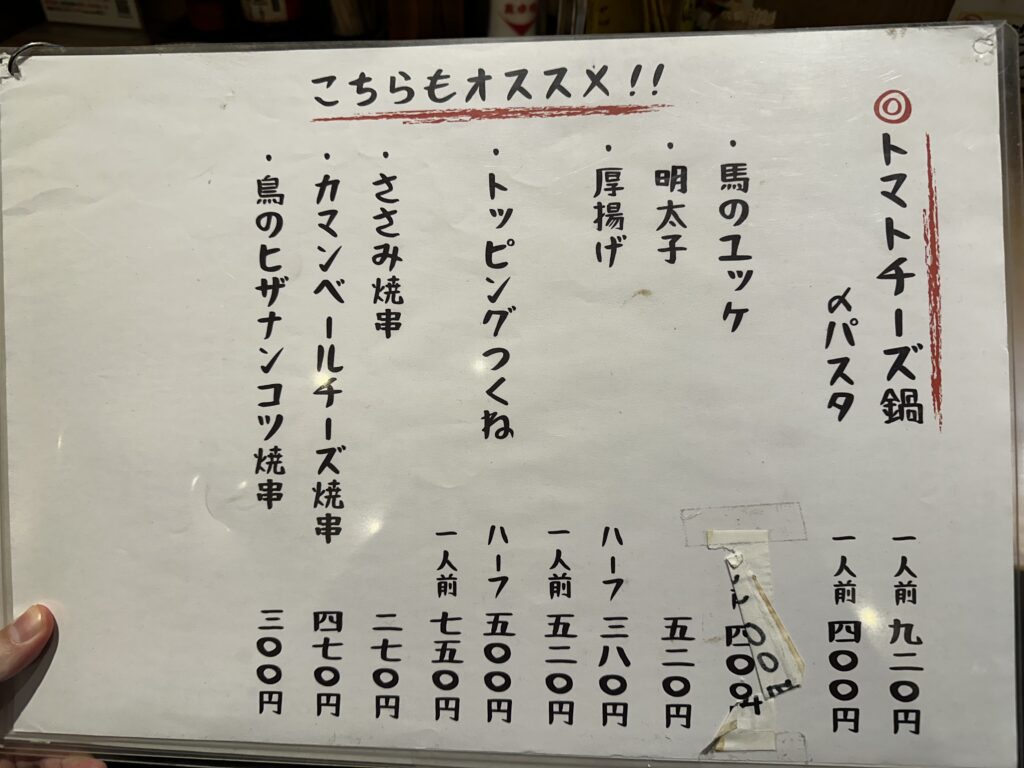 こちらもオススメ!!
◎トマトチーズ鍋 一人前 九二〇円
〆パスタ 一人前 四〇〇円
・馬のユッケ
・明太子 五二〇円
・厚揚げ ハーフ 三八〇円
一人前 五二〇円
・トッピングつくね ハーフ 五〇〇円
一人前 七五〇円
・ささみ焼串 二七〇円
・カマンベールチーズ焼串 四七〇円
・鳥のヒザナンコツ焼串 三〇〇円